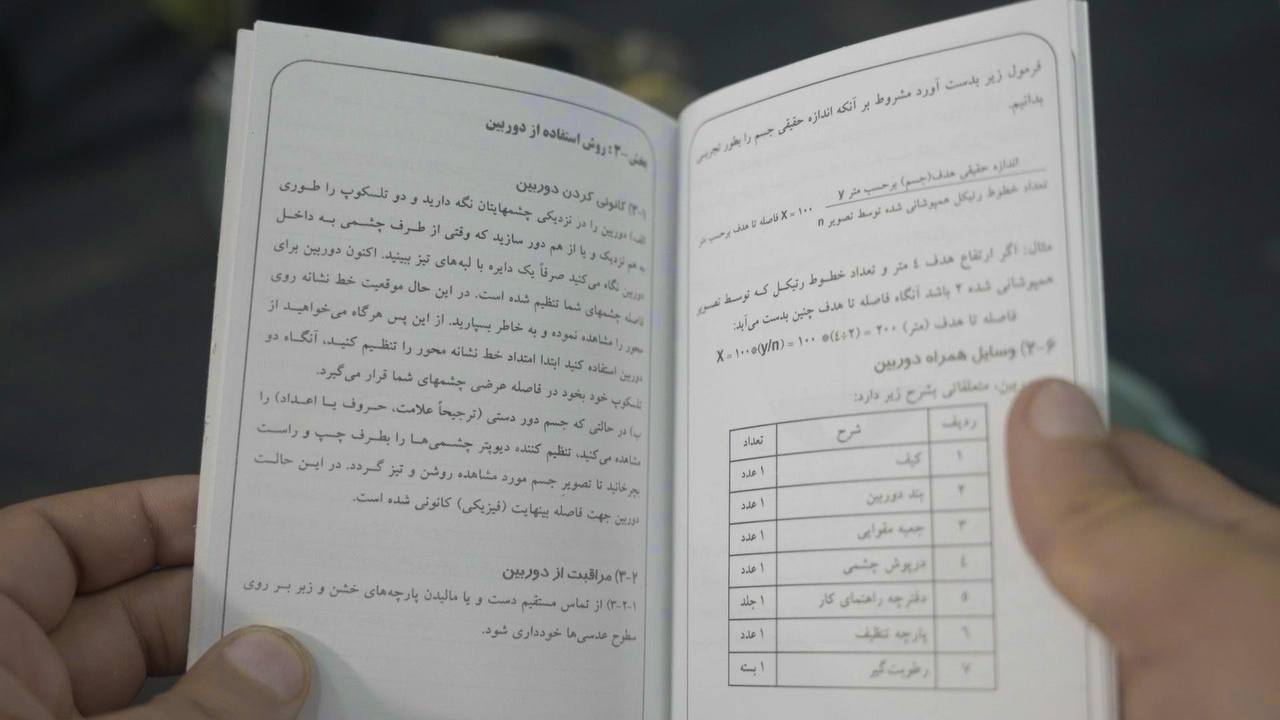 فرمول زیر بدست آورد مشروط بر آنکه اندازه حقیقی جسم را بطور تجربی
بدانیم.
اندازه حقیقی هدف(جسم) برحسب متر y
X = ۱۰۰ فاصله تا هدف برحسب متر
تعداد خطوط رتیکل همپوشانی شده توسط تصویر n
مثال: اگر ارتفاع هدف ٤ متر و تعداد خطوط رتیکل که توسط تصویر
همپوشانی شده ۲ باشد آنگاه فاصله تا هدف چنین بدست می‌آید:
فاصله تا هدف (متر) X = ۱۰۰*(y/n) = ۱۰۰ *(٤÷۲) = ۲۰۰
۳-۶) وسایل همراه دوربین
دوربین، متعلقاتی بشرح زیر دارد:
ردیف شرح تعداد
۱ کیف ۱ عدد
۲ بند دوربین ۱ عدد
۳ جعبه مقوایی ۱ عدد
٤ درپوش چشمی ۱ عدد
۵ دفترچه راهنمای کار ۱ جلد
٦ پارچه تنظیف ۱ عدد
۷ رطوبت‌گیر ۱ بسته
بخش -۳: روش استفاده از دوربین
۳-۱) کانونی کردن دوربین
الف) دوربین را در نزدیکی چشمهایتان نگه دارید و دو تلسکوپ را طوری
به هم نزدیک و یا از هم دور سازید که وقتی از طرف چشمی به داخل
دوربین نگاه می‌کنید صرفاً یک دایره با لبه‌های تیز ببینید. اکنون دوربین برای
فاصله چشمهای شما تنظیم شده است. در این حال موقعیت خط نشانه روی
محور را مشاهده نموده و به خاطر بسپارید. از این پس هرگاه می‌خواهید از
دوربین استفاده کنید ابتدا امتداد خط نشانه محور را تنظیم کنید، آنگاه دو
تلسکوپ خود بخود در فاصله عرضی چشمهای شما قرار می‌گیرد.
ب) در حالتی که جسم دور دستی (ترجیحاً علامت، حروف یا اعداد) را
مشاهده می‌کنید، تنظیم کننده دیوپتر چشمی‌ها را بطرف چپ و راست
بچرخانید تا تصویرِ جسم مورد مشاهده روشن و تیز گردد. در این حالت
دوربین جهت فاصله بینهایت (فیزیکی) کانونی شده است.
۳-۲) مراقبت از دوربین
۳-۲-۱) از تماس مستقیم دست و یا مالیدن پارچه‌های خشن و زبر بر روی
سطرح عدسی‌ها خودداری شود.